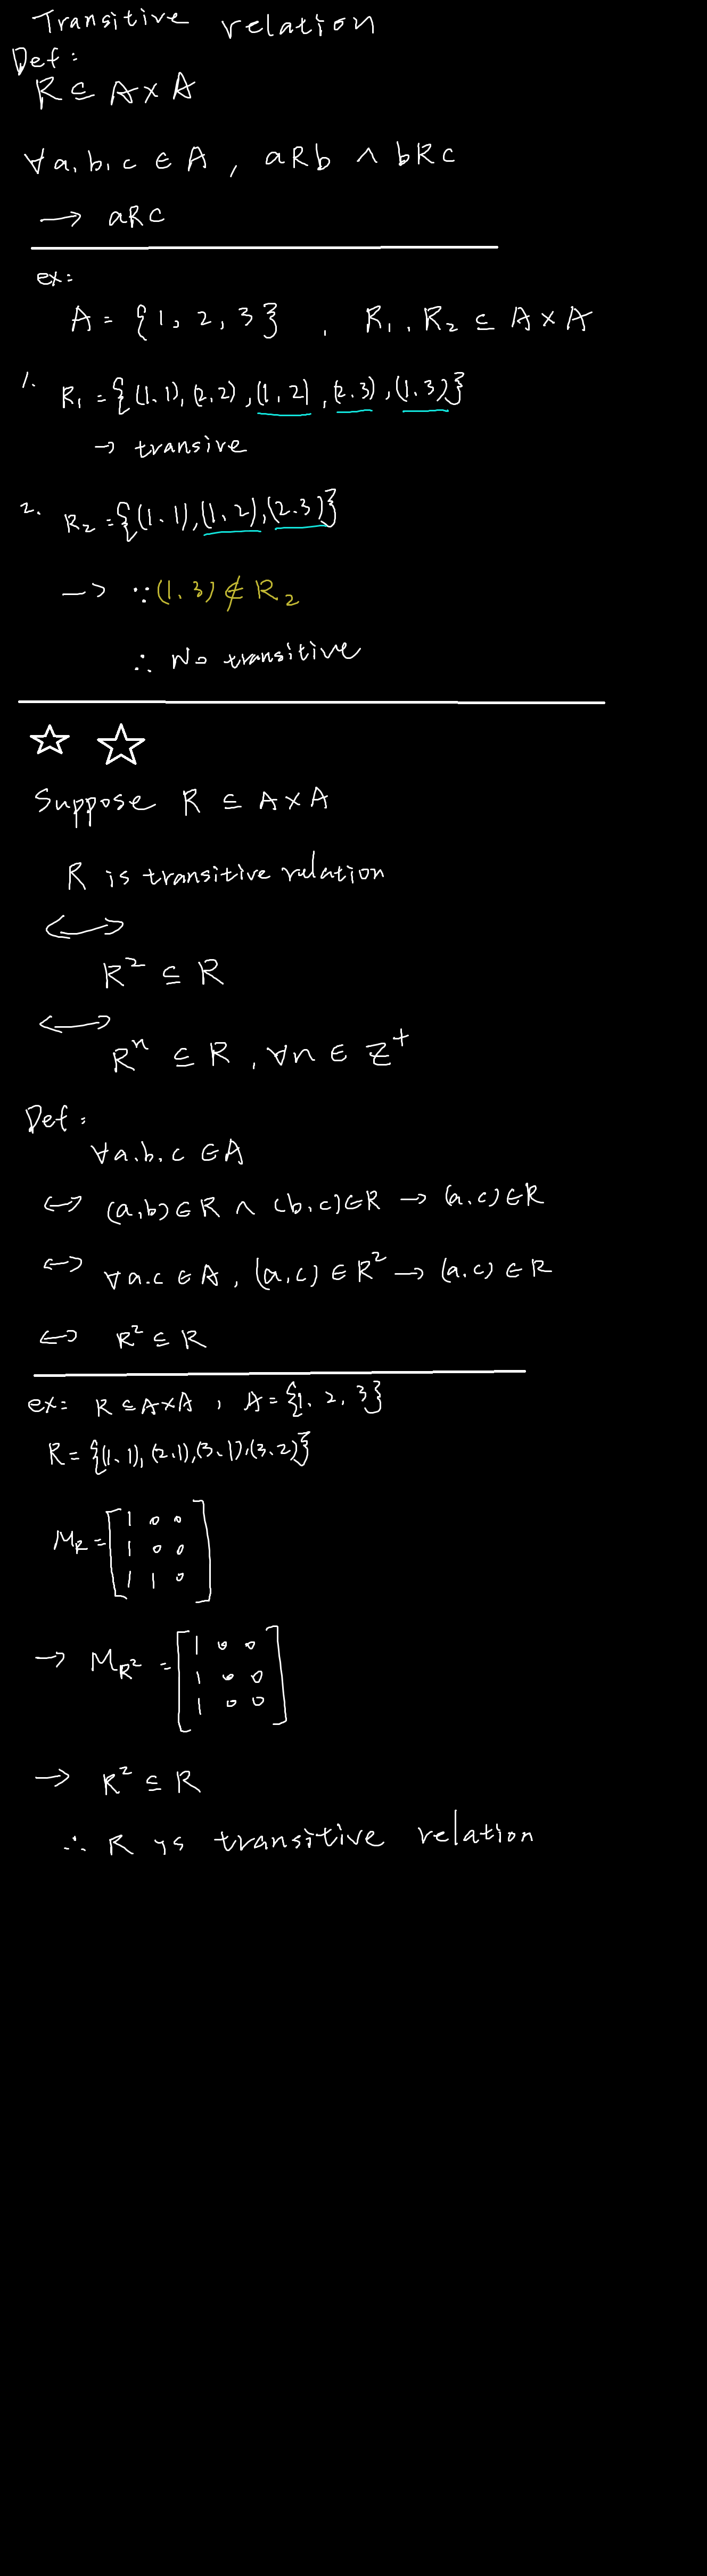 Transitive relation
Def:
R ⊆ A × A
∀a, b, c ∈ A, aRb ∧ bRc
→ aRc
ex:
A = {1, 2, 3}, R₁, R₂ ⊆ A × A
1. R₁ = {(1,1), (2,2), (1,2), (2,3), (1,3)}
→ transive
2. R₂ = {(1,1), (1,2), (2,3)}
→ ∵ (1,3) ∉ R₂
∴ No transitive
☆ ☆
Suppose R ⊆ A × A
R is transitive relation
↔
R² ⊆ R
↔
Rⁿ ⊆ R, ∀n ∈ Z⁺
Def:
∀a,b,c ∈ A
↔ (a,b) ∈ R ∧ (b,c) ∈ R → (a,c) ∈ R
↔ ∀a,c ∈ A, (a,c) ∈ R² → (a,c) ∈ R
↔ R² ⊆ R
ex: R ⊆ A × A, A = {1, 2, 3}
R = {(1,1), (2,1), (3,1), (3,2)}
1 0 0
M_R = [1 0 0]
1 1 0
1 0 0
→ M_R² = [1 0 0]
1 0 0
→ R² ⊆ R
∴ R is transitive relation